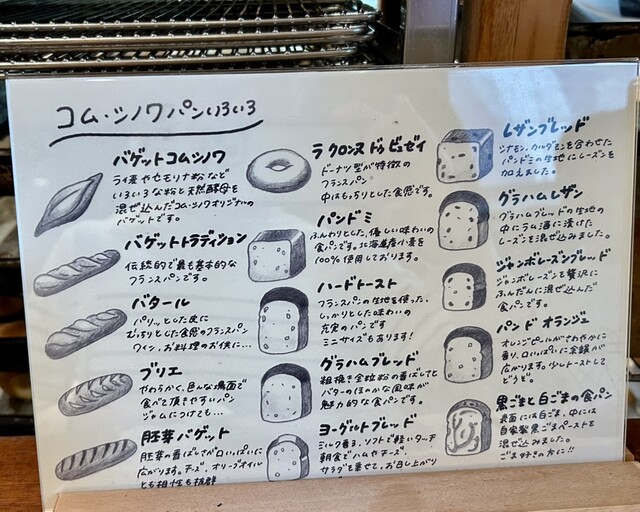 コム・シノワパンいろいろ
バゲットコムシノワ
ライ麦やセモリナ粉など
いろいろな粉と天然酵母を
混ぜ込んだコム・シノワオリジナルの
バゲットです。
バゲットトラディション
伝統的で最も基本的な
フランスパンです。
バタール
パリッとした皮に
むっちりとした食感のフランスパン
ワイン、お料理のお供に…
プリエ
やわらかく、色んな場面で
食べて頂きやすいパン
ジャムにつけても…
胚芽バゲット
胚芽の香ばしさが口いっぱいに
広がります。チーズ、オリーブオイル
とも相性も抜群
ラ クロンヌ ドゥ ビュゼイ
ドーナツ型が特徴の
フランスパン
中はもっちりとした食感です。
パンドミ
ふんわりとした、優しい味わいの
食パンです。北海道産小麦を
100%使用しております。
ハードトースト
フランスパンの生地を使った、
しっかりとした味わいの
充実のパンです
ミニサイズもあります!
グラハムブレッド
粗挽き全粒粉の香ばしさと
バターのほのかな風味が
魅力的な食パンです。
ヨーグルトブレッド
ミルク香る、ソフトで軽いタッチ
朝食でハムやチーズ、
サラダを乗せて、お召し上がり
レザンブレッド
シナモン、カルダモンを合わせた
パンドミの生地にレーズンを
加えました。
グラハムレザン
グラハムブレッドの生地の
中にラム酒に漬けた
レーズンを混ぜ込みました。
ジャンボレーズンブレッド
ジャンボレーズンを贅沢に
ふんだんに混ぜ込んだ
食パンです。
パンド オランジュ
オレンジピールがさわやかに
香り、口いっぱいに余韻が
広がります。少しトーストして
どうぞ。
黒ごまと白ごまの食パン
表面には白ごま、中には
自家製黒ごまペーストを
混ぜ込みました。
ごま好きの方に!!